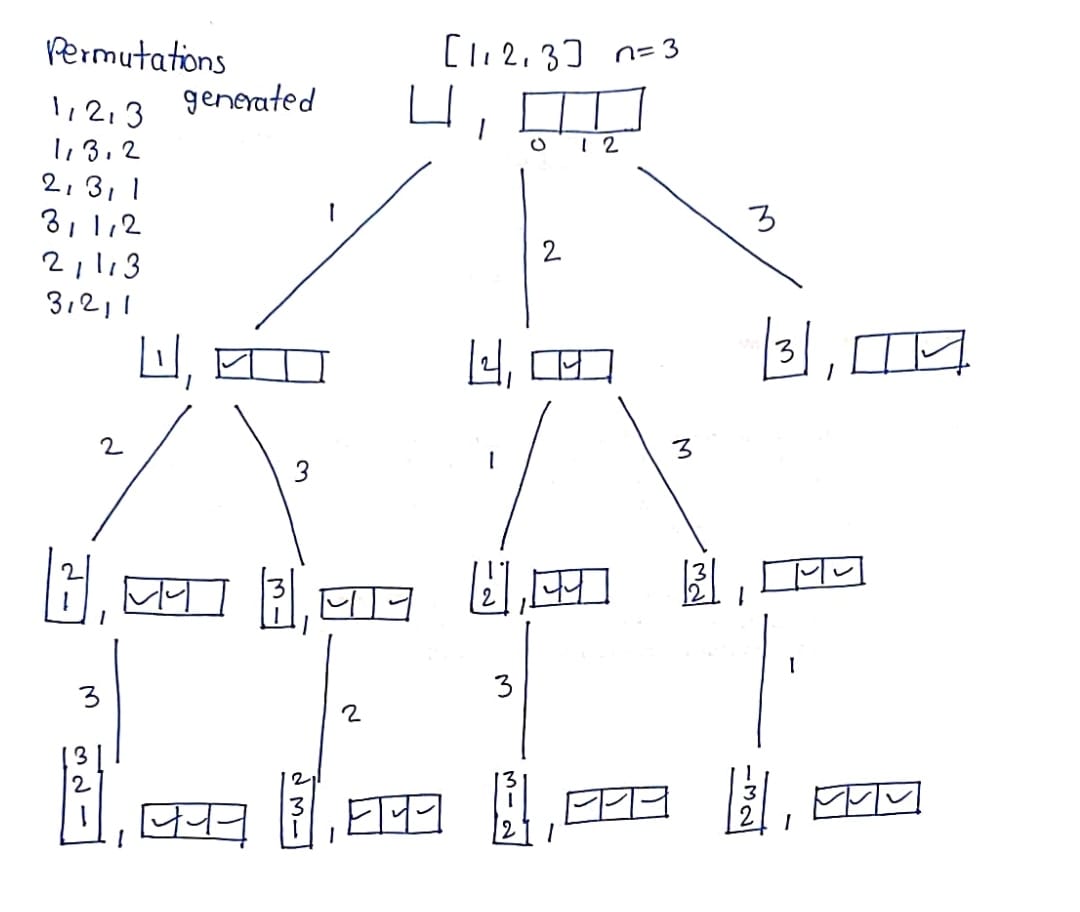 Permutations
generated
1, 2, 3
1, 3, 2
2, 3, 1
3, 1, 2
2, 1, 3
3, 2, 1
[1, 2, 3] n=3
,
0 1 2
1 2 3
1 , 2 , 3 ,
2 3 1 3
2 3 1 3
1 , 1 , 2 , 2 ,
3 2 3 1
3 2 3 1
2 3 1 3
1 , 1 , 2 , 2 ,